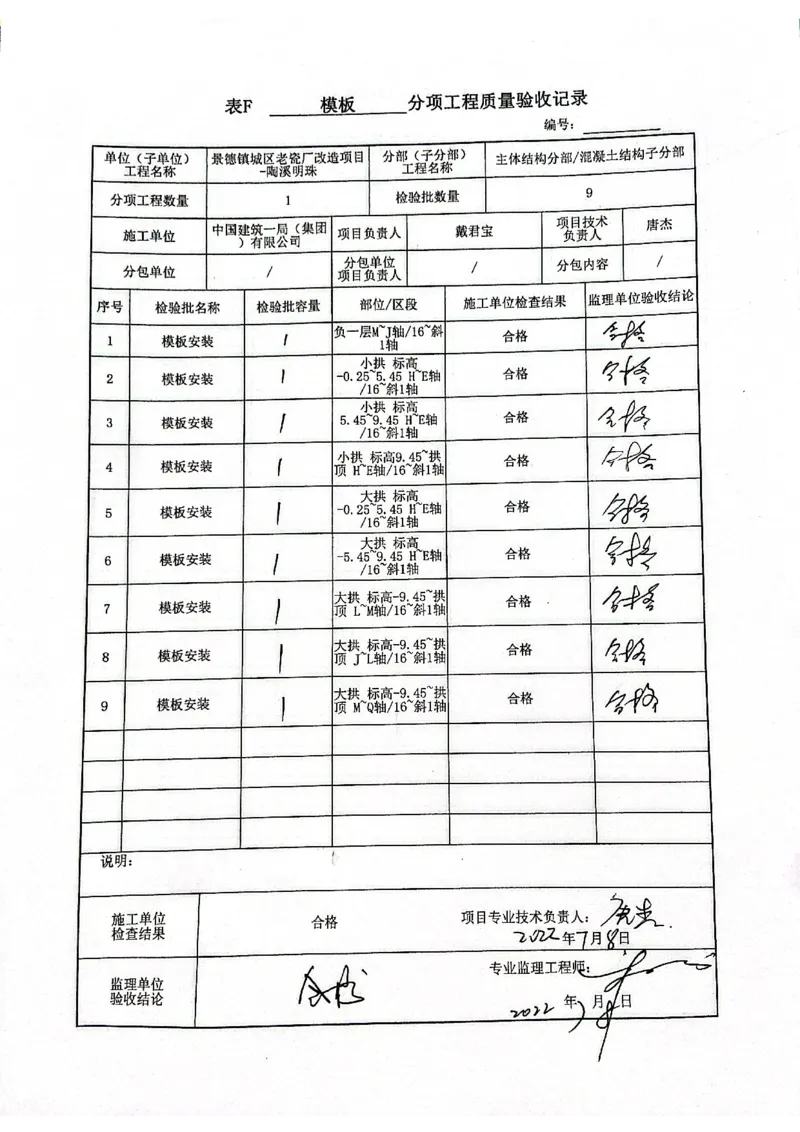 表F 模板 分项工程质量验收记录
编号：
单位（子单位）工程名称 景德镇城区老瓷厂改造项目-陶溪明珠 分部（子分部）工程名称 主体结构分部/混凝土结构子分部
分项工程数量 1 检验批数量 9
施工单位 中国建筑一局（集团）有限公司 项目负责人 戴君宝 项目技术负责人 唐杰
分包单位 / 分包单位项目负责人 / 分包内容 /
序号 检验批名称 检验批容量 部位/区段 施工单位检查结果 监理单位验收结论
1 模板安装 1 负一层M~J轴/16~斜1轴 合格 合格
2 模板安装 1 小拱 标高-0.25~5.45 H~E轴/16~斜1轴 合格 合格
3 模板安装 1 小拱 标高5.45~9.45 H~E轴/16~斜1轴 合格 合格
4 模板安装 1 小拱 标高9.45~拱顶 H~E轴/16~斜1轴 合格 合格
5 模板安装 1 大拱 标高-0.25~5.45 H~E轴/16~斜1轴 合格 合格
6 模板安装 1 大拱 标高-5.45~9.45 H~E轴/16~斜1轴 合格 合格
7 模板安装 1 大拱 标高-9.45~拱顶 L~M轴/16~斜1轴 合格 合格
8 模板安装 1 大拱 标高-9.45~拱顶 J~L轴/16~斜1轴 合格 合格
9 模板安装 1 大拱 标高-9.45~拱顶 M~Q轴/16~斜1轴 合格 合格
说明：
施工单位检查结果 合格 项目专业技术负责人：唐杰
2022年7月8日
监理单位验收结论 合格 专业监理工程师：
2022年7月8日